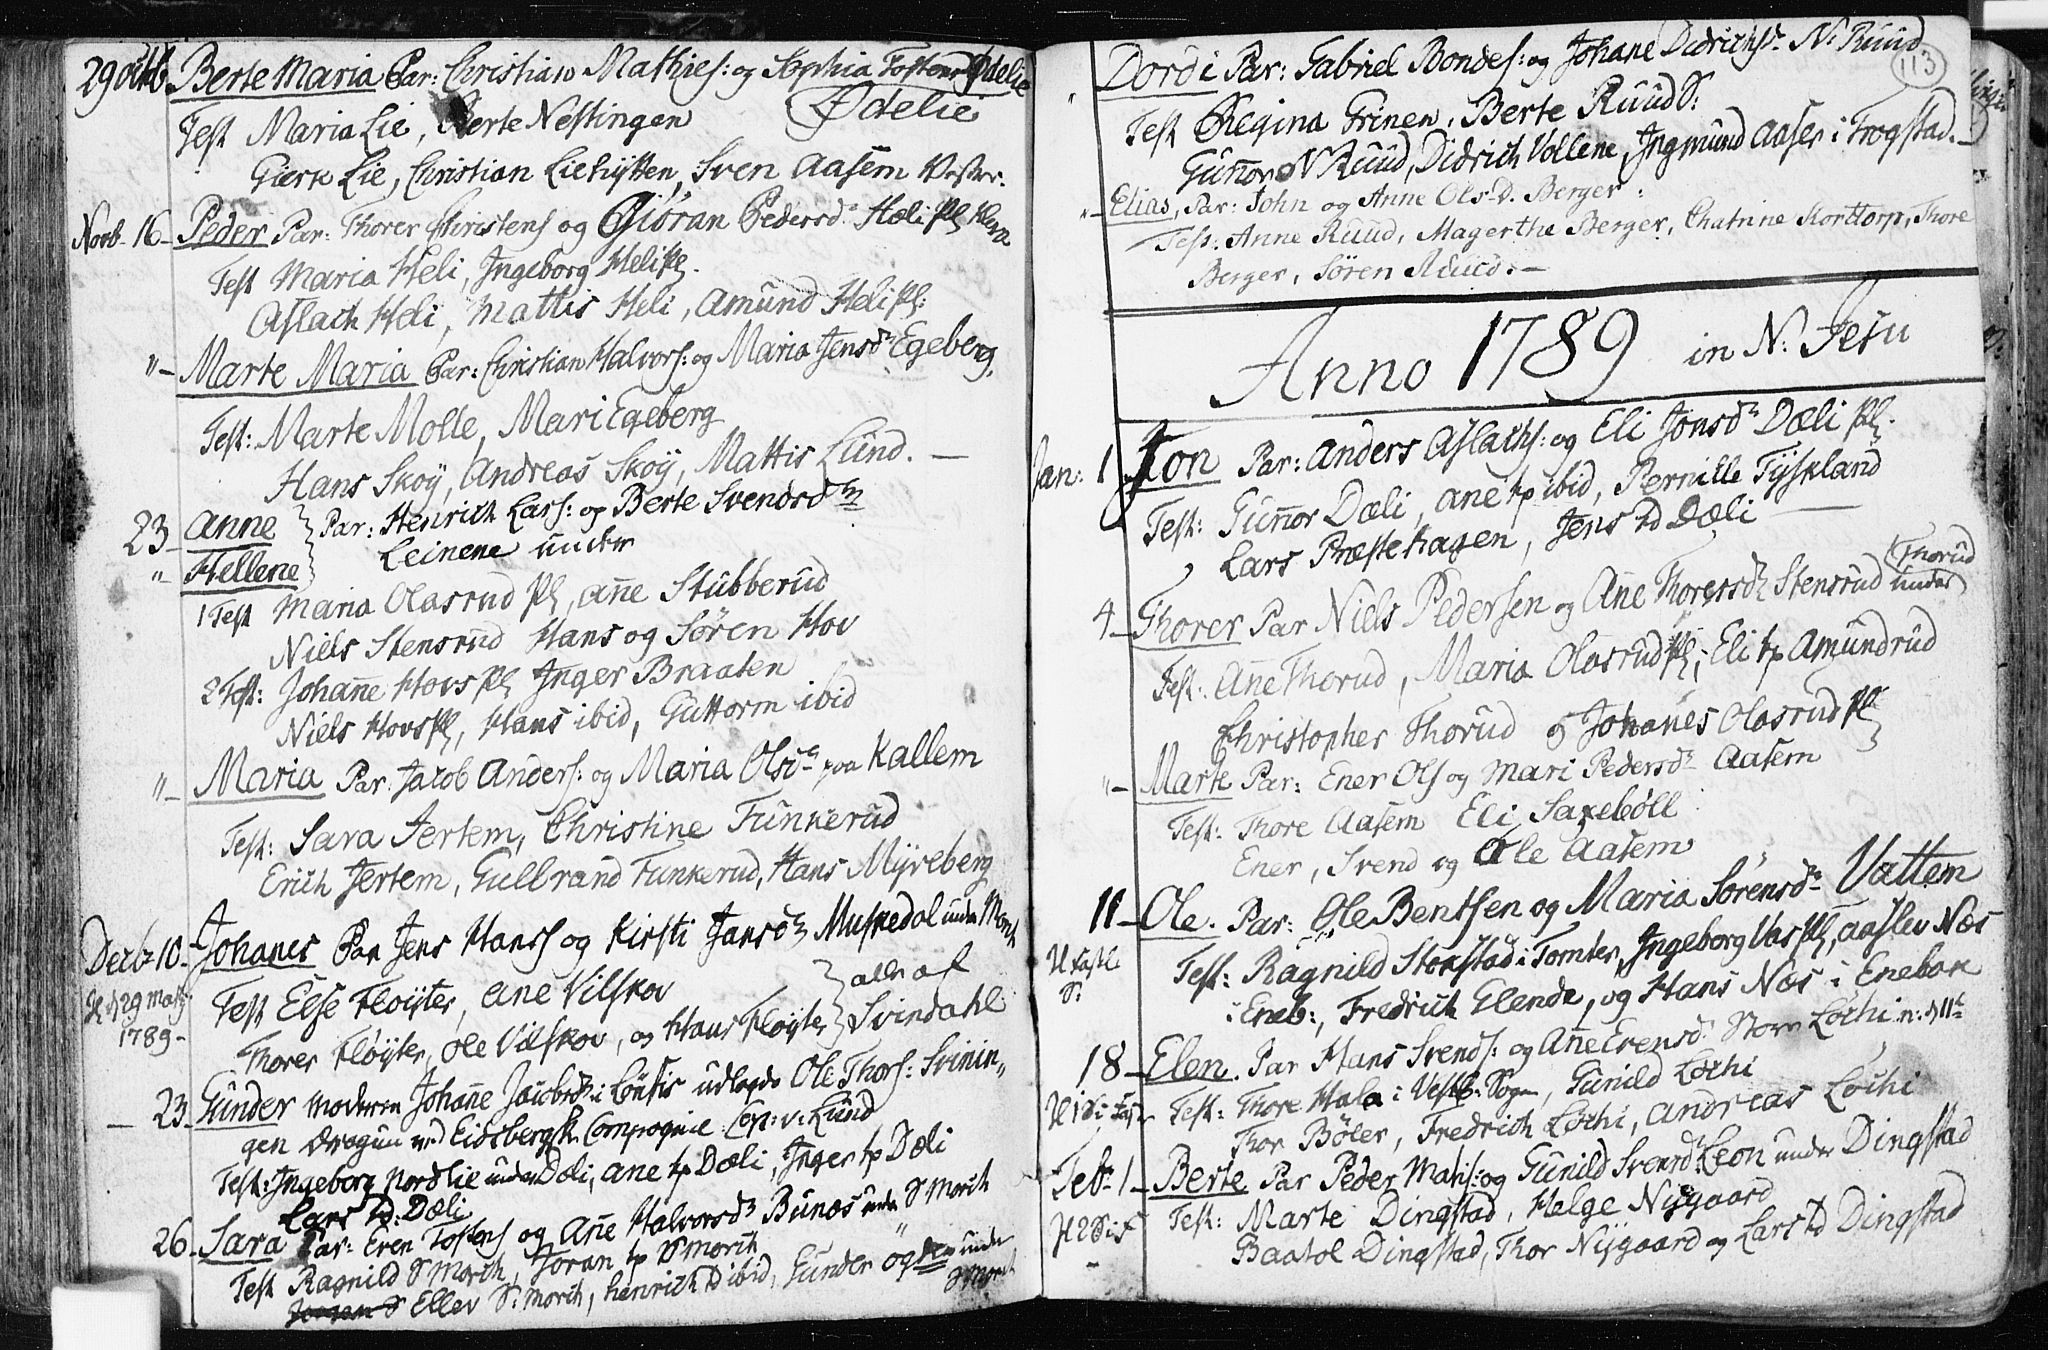 29 Octb Berte Maria Par: Christian Mathies: og Sophia Ødelie
Ødelie
Test Maria Lie, Berte Nestingen
Giertr Lie, Christian Liehÿtten, Sven Aasem Vester.
Novb 16 Peder Par: Thorer Christens og Giøran Pedersd. Hæli Pl
Test Maria Heli, Jngeborg Heli Pl.
Aslach Heli, Mattis Heli, Amund Heli Pl:
"– Marte Maria Par: Christian Halvors: og Maria Jensdr Egeberg.
Test: Marte Molle, Mari Egeberg
Hans Skoÿ, Andreas Skoÿ, Mattis Lund. —
23 – Anne Par: Henrich Lars: og Berte Svendsdr
" – Hellene Leinene under
1 Test Maria Olasrud Pl, Añe Stubberud
Niels Stensrud Hans og Søren Hov
2 Test: Johañe Hovs Pl Jnger Braaten
Niels Hovs Pl, Hans ibid, Guttorm ibid
"– Maria Par: Jacob Anders: og Maria Olsdr paa Kallem
Test: Sara Jertem, Christine Funkerud
Erich Jertem, Gulbrand Funkerud, Hans Mÿreberg
Decb 10 – Johanes Par Jens Hans og Kirsti Jansdr Muskedal under
29 Mart Test Else Fløÿter, Ane Vilskov alle af
1789 – Thorer Fløÿter, Ole Vilskov, og Hans Fløÿter Svindahl
23 – Gunder Moderen Johañe Jacobsdr i udlagde Ole Thors: Svinin"
gen Dragun ved Eidsbergsk. Compagnie Cap: v: Lund
Test: Jngeborg Nordlie under Dæli, Ane tp Dæli, Jnger tp Dæli
Lars td: Dæli
26 – Sara Par: Even Tostens og Añe Halvorsdr Bunæs under S Morch
Test Ragnild S Morch, Joran tp S Morch
Ellev S: Morch, henrich td ibid, Gunder under
S Morch
113
" Dordi Par: Gabriel Bondes: og Johane Didrichsdr N: Ruud
Test Regina Grinen, Berte Ruud S:
Guñor N Ruud, Didrich Vollene, Jngmund Aaser i Trogstad. –
" – Elias, Par: John og Anne Ols D. Berger:
Test: Anne Ruud, Magerthe Berger, Chatrine Korttorp, Thore
Berger, Søren Ruud. —
Anno 1789 in N: Jesu
Jan: 1 Jon Par: Anders Aslachs: og Eli Jonsdr Dæli Pl.
Test: Guñor Dæli, Ane tp ibid, Pernille Tÿskland
Lars Præstehagen, Jens td Dæli —
Thorud
4 – Thorer Par Niels Pedersen og Añe Thorersdr Stensrud under
Test: Añe Thorud, Maria Olasrud Pl, Eli tp Amundrud
Christopher Thorud og Johañes Olasrud Pl
" – Marte Par: Ener Ols og Mari Pedersdr Aasem
Test: Thore Aasem Eli Saxebøll
Ener, Svend og Ole Aasem
11 – Ole. Par: Ole Bentsen og Maria Sørensdr Vattem
Test: Ragnild Stokstad i Tomter, Jngeborg Vas Pl, Aaslev Næs
i Eneb:, Fredrich Elende, og Hans Næs i Enebak
18 – Elen. Par Hans Svends: og Añe Evensdr Store Løchi
Test: Thore Hala i Vestb: Sogn, Gunild Løchi
Thor Bøler, Fredrich Løchi, Andreas Løchi
Feb: 1 – Berte Par Peder Matis: og Gunild Svensdr Leon under Dingstad
Test: Marte Dingstad, Helge Nÿgaard
Baatol Dingstad, Thor Nÿgaard og Lars td Dingstad